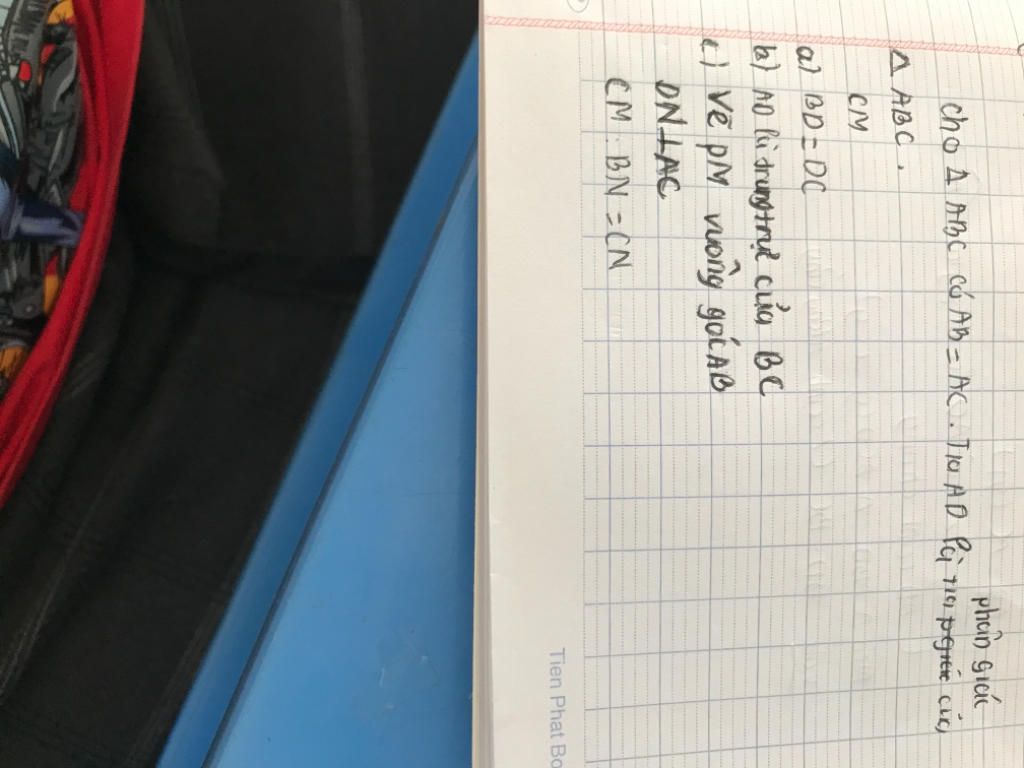 phân giác
Cho Δ ABC có AB = AC. Tia AD là tia của
Δ ABC.
CM
a) BD = DC
b) AD là trung trực của BC
c) Vẽ DM vuông góc AB
DN ⊥ AC
CM : BN = CN
Tien Phat Bo